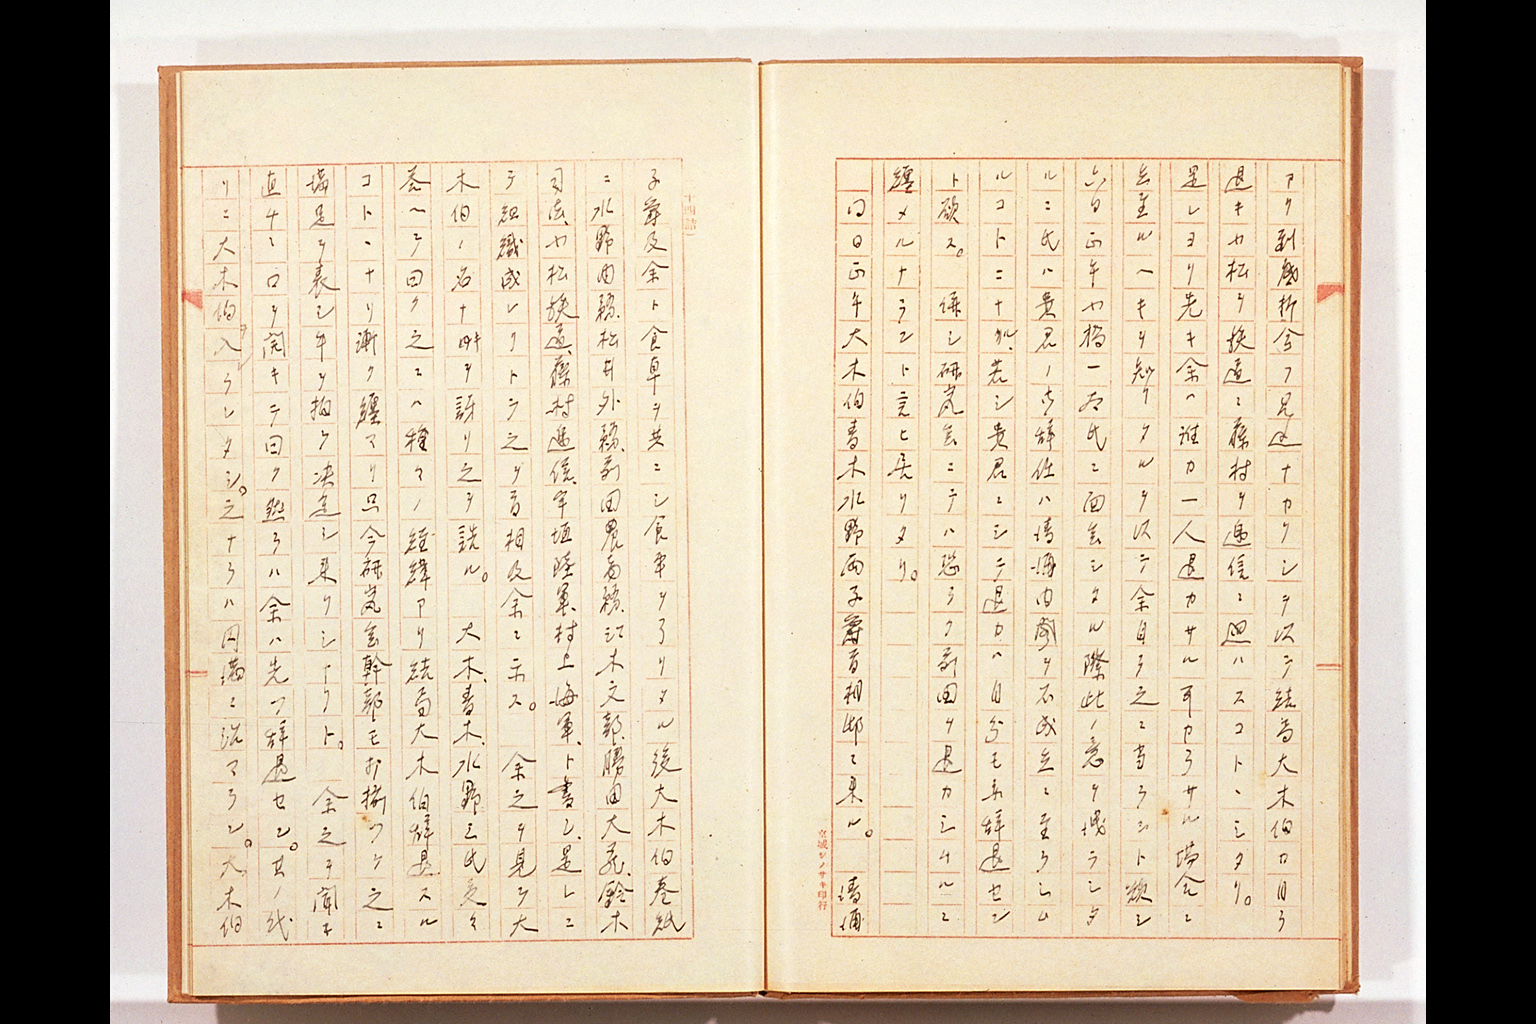 アリ到底折合フ見込ナカリシヲ以テ結局大木伯カ自ラ
退キ小松ヲ鉄道ニ藤村ヲ逓信ニ廻ハスコトヽシタリ。
是レヨリ先キ余ハ誰カ一人退カサル可カラサル場合ニ
立至ルヘキヲ知リタルヲ以テ余自ラ之ニ当ラント欲シ
六日正午小橋一太氏ニ面会シタル際此ノ意ヲ洩ラシタ
ルニ氏ハ貴君ノ御辞任ハ清浦内閣ヲ不成立ニ至ラシム
ルコトニナル、若シ貴君ニシテ退カハ自分モ亦辞退セン
ト欲ス。 併シ研究会ニテハ恐ラク前田ヲ退カシムルニ
纏メルナラント言ヒ居リタリ。
同日正午大木伯青木水野両子爵首相邸ニ来ル。 清浦
子爵及余ト食卓ヲ共ニシ食事ヲ了リタル後大木伯巻紙
ニ水野内務、松井外務、前田農商務、江木文部、勝田大蔵、鈴木
司法、小松鉄道、藤村逓信、宇垣陸軍、村上海軍、ト書シ、是レニ
テ組織成レリトテ之ヲ首相及余ニ示ス。 余之ヲ見テ大
木伯ノ名ナキヲ訝リ之ヲ詰ル。 大木、青木、水野三氏交々
答ヘテ曰ク之ニハ種々ノ経緯アリ結局大木伯辞退スル
コトヽナリ漸ク纏マリ只今研究会幹部モ 之ニ
満足ヲ表シ手ヲ拍テ決定シ来リシナリト。 余之ヲ聞キ
直チニ口ヲ開キテ曰ク然ラハ余ハ先ツ辞退セン。其ノ代
リニ大木伯入ラレタシ。之ナラハ円満ニ治マラン。大木伯